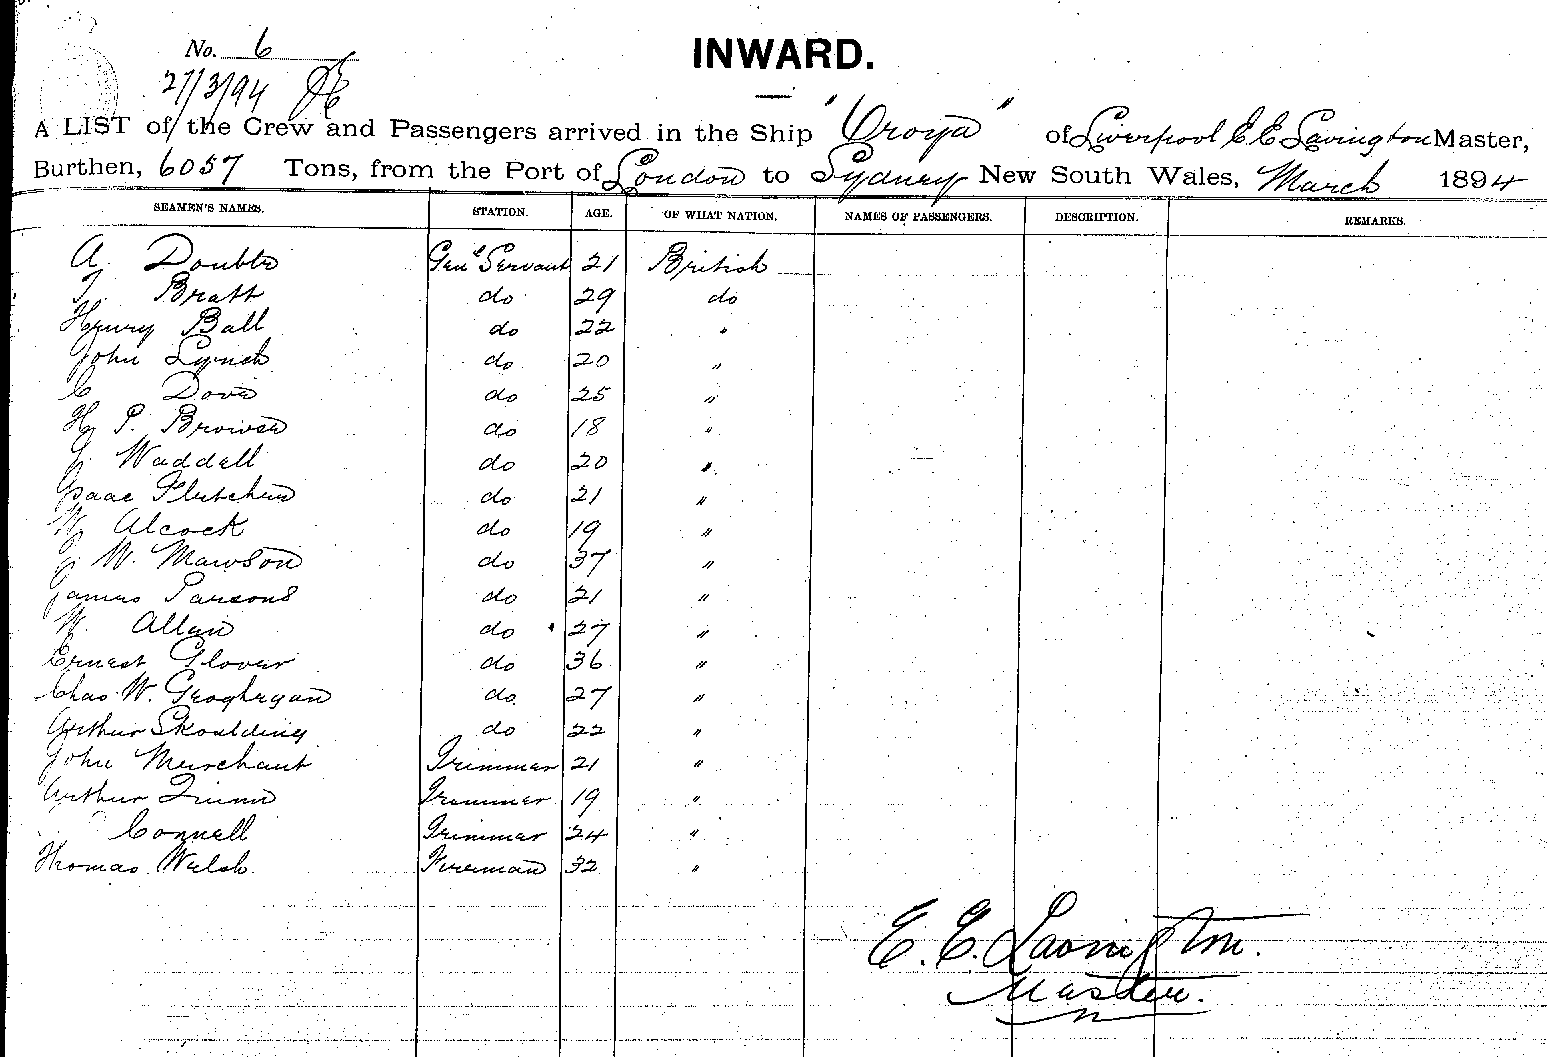 No. 6
27/3/94
INWARD.
A LIST of the Crew and Passengers arrived in the Ship "Oroya" of Liverpool E E Lavington Master,
Burthen, 6057 Tons, from the Port of London to Sydney New South Wales, March 1894
SEAMEN'S NAMES. STATION. AGE. OF WHAT NATION. NAMES OF PASSENGERS. DESCRIPTION. REMARKS.
A. Double Genl Servant 21 British
T. Bratt do 29 do
Henry Ball do 22 "
John Lynch do 20 "
C Dove do 25 "
H. P. Brown do 18 "
J. Waddell do 20 "
Isaac Fletcher do 21 "
W. Alcock do 19 "
J. W. Mawson do 37 "
James Parsons do 21 "
W. Allan do 27 "
Ernest Glover do 36 "
Chas W. Geoghegan do 27 "
Arthur Skoulding do 22 "
John Merchant Trimmer 21 "
Arthur Trimmer 19 "
Connell Trimmer 24 "
Thomas Welsh Fireman 32 "
E. E. Lavington.
Master.